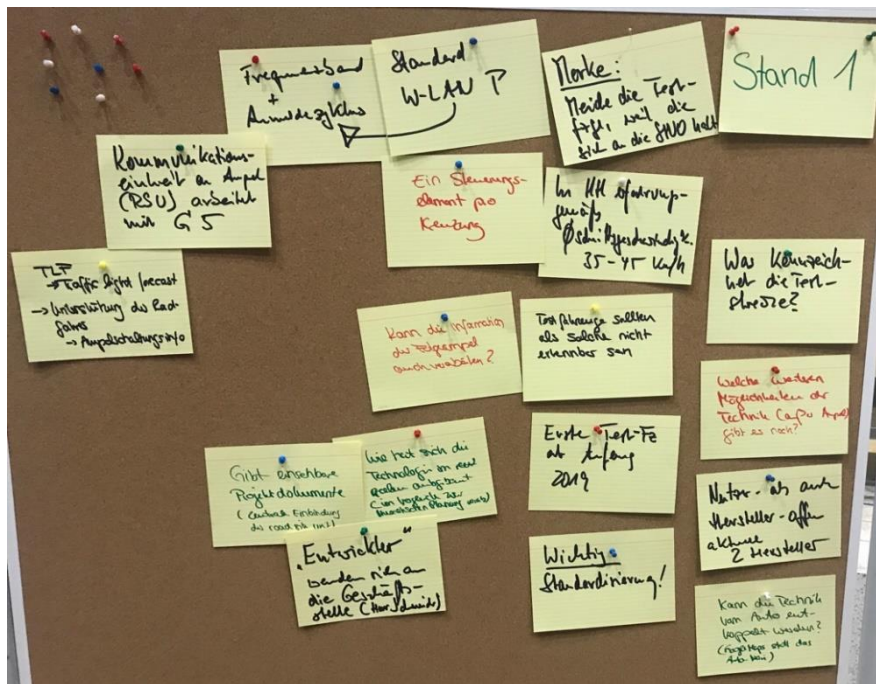 Frequenzband
+
Anmeldezyklus
Standard
W-LAN P
Merke:
Meide die Test-
fzge, weil die
sich an die StVO hält
Stand 1
Kommunikations-
einheit an Ampel
(RSU) arbeitet
mit G5
Ein Steuerungs-
element pro
Kreuzung
In HH erfahrungs-
gemäß
35-45 km/h
TLF
→ Traffic light forecast
→ Unterstützung des Rad-
fahrers
→ Ampelschaltungsinfo
Was kennzeich-
net die Test-
strecke?
Kann die Information
der Folgeampel
auch vorab
Testfahrzeuge sollten
als solche nicht
erkennbar sein
Welche weiteren
Möglichkeiten der
Technik (an Ampel)
gibt es noch?
Gibt einsehbare
Projektdokumente
(zentrale Einbindung
der road side unit)
Wie lässt sich die
Technologie im
Erste Test-Fz
ab Anfang
2019
Nutzer- als auch
Hersteller-offen
aktuell
2 Hersteller
„Entwickler"
wenden sich an
die Geschäfts-
stelle
Wichtig
Standardisierung!
Kann die Technik
vom Auto ent-
koppelt werden?
statt das